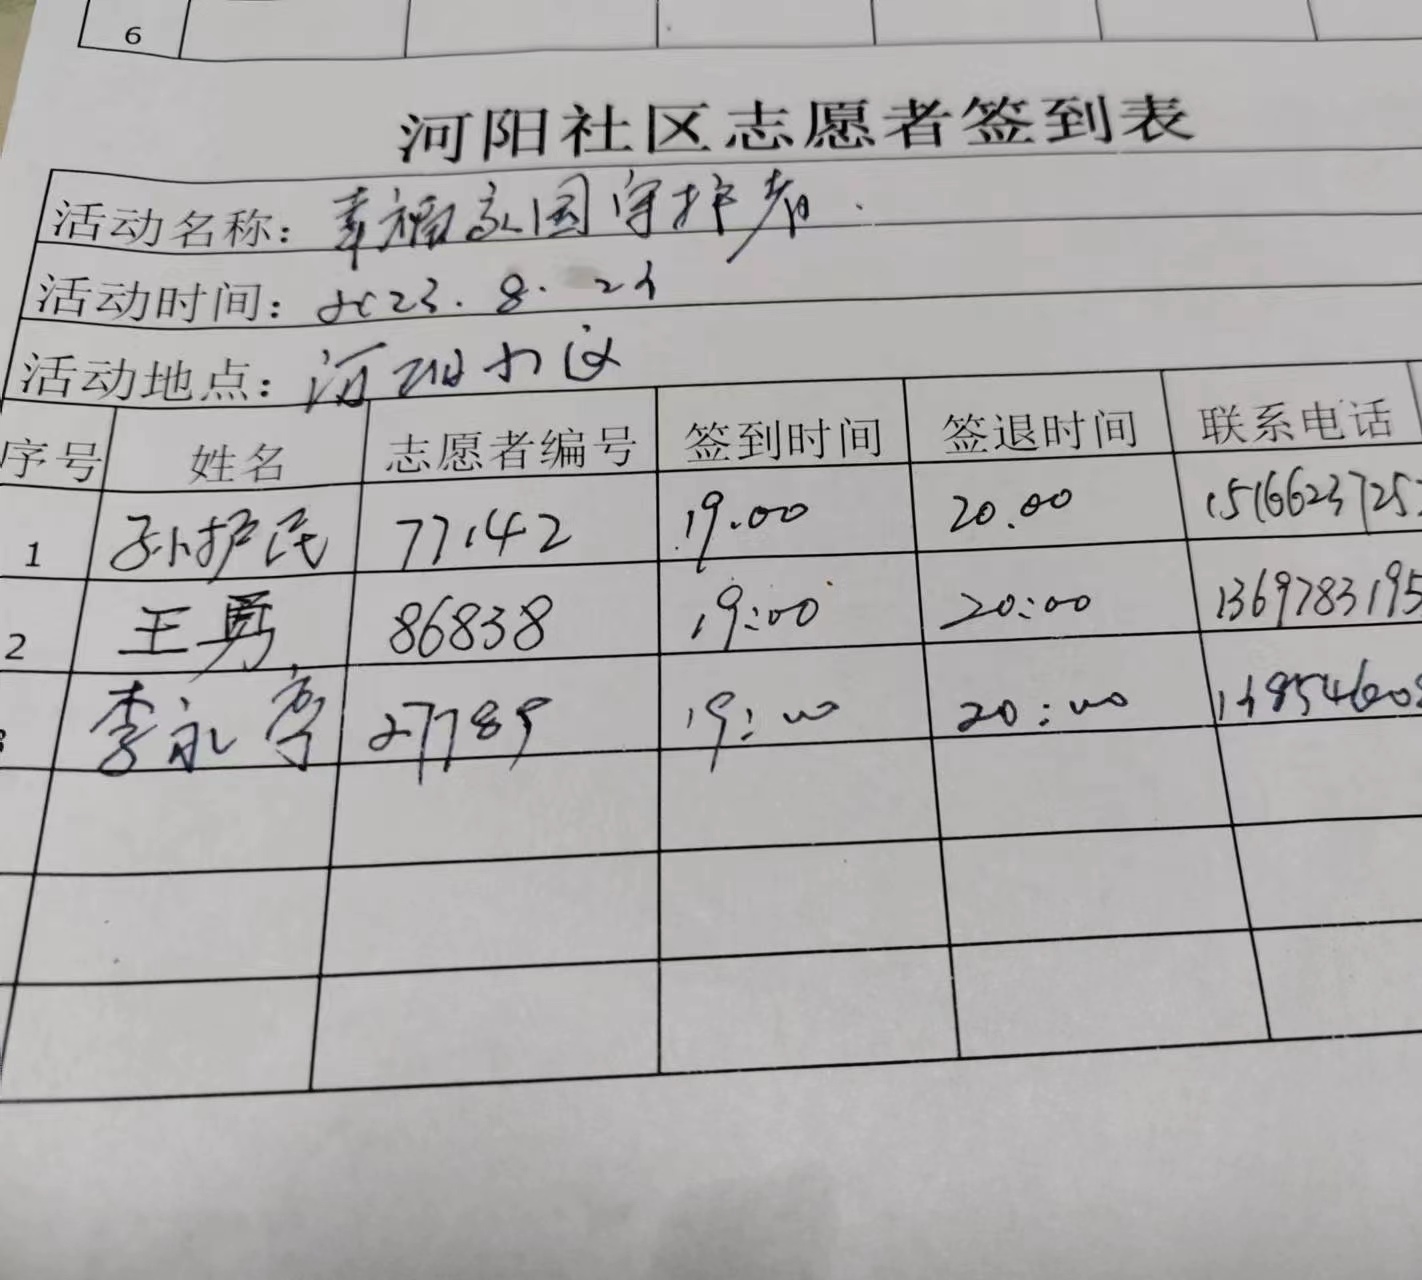 6
河阳社区志愿者签到表
活动名称：幸福家园守护者.
活动时间：2023.8.21
活动地点：河阳小区
序号 姓名 志愿者编号 签到时间 签退时间 联系电话
1 孙护民 77142 19.00 20.00 1516623725
2 王勇 86838 19:00 20:00 1369783195
李永亭 27789 19:00 20:00